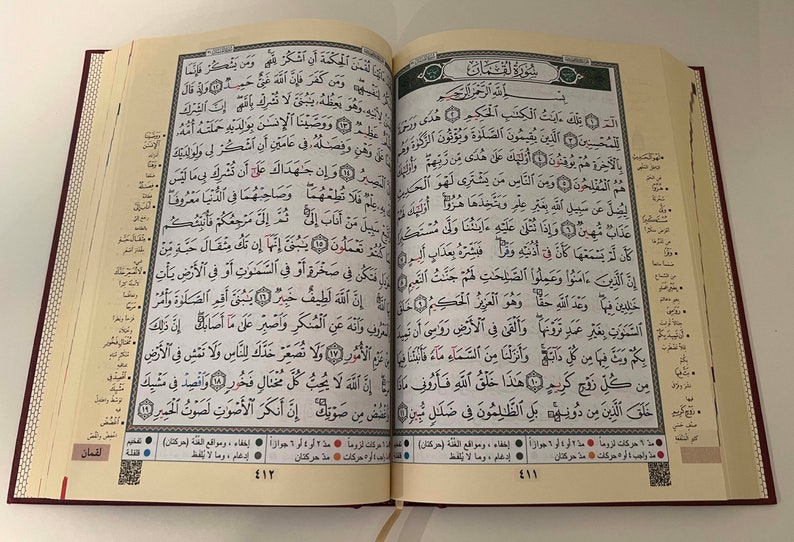 سُورَةُ لُقْمَانَ
بِسْمِ ٱللَّهِ ٱلرَّحْمَٰنِ ٱلرَّحِيمِ
الٓمٓ ١ تِلْكَ ءَايَٰتُ ٱلْكِتَٰبِ ٱلْحَكِيمِ ٢ هُدًى وَرَحْمَةً
لِّلْمُحْسِنِينَ ٣ ٱلَّذِينَ يُقِيمُونَ ٱلصَّلَوٰةَ وَيُؤْتُونَ ٱلزَّكَوٰةَ وَهُم
بِٱلْءَاخِرَةِ هُمْ يُوقِنُونَ ٤ أُو۟لَٰٓئِكَ عَلَىٰ هُدًى مِّن رَّبِّهِمْ وَأُو۟لَٰٓئِكَ
هُمُ ٱلْمُفْلِحُونَ ٥ وَمِنَ ٱلنَّاسِ مَن يَشْتَرِى لَهْوَ ٱلْحَدِيثِ
لِيُضِلَّ عَن سَبِيلِ ٱللَّهِ بِغَيْرِ عِلْمٍ وَيَتَّخِذَهَا هُزُوًا أُو۟لَٰٓئِكَ لَهُمْ
عَذَابٌ مُّهِينٌ ٦ وَإِذَا تُتْلَىٰ عَلَيْهِ ءَايَٰتُنَا وَلَّىٰ مُسْتَكْبِرًا
كَأَن لَّمْ يَسْمَعْهَا كَأَنَّ فِىٓ أُذُنَيْهِ وَقْرًا فَبَشِّرْهُ بِعَذَابٍ أَلِيمٍ ٧
إِنَّ ٱلَّذِينَ ءَامَنُوا۟ وَعَمِلُوا۟ ٱلصَّٰلِحَٰتِ لَهُمْ جَنَّٰتُ ٱلنَّعِيمِ ٨
خَٰلِدِينَ فِيهَا وَعْدَ ٱللَّهِ حَقًّا وَهُوَ ٱلْعَزِيزُ ٱلْحَكِيمُ ٩ خَلَقَ
ٱلسَّمَٰوَٰتِ بِغَيْرِ عَمَدٍ تَرَوْنَهَا وَأَلْقَىٰ فِى ٱلْأَرْضِ رَوَٰسِىَ أَن تَمِيدَ
بِكُمْ وَبَثَّ فِيهَا مِن كُلِّ دَآبَّةٍ وَأَنزَلْنَا مِنَ ٱلسَّمَآءِ مَآءً فَأَنۢبَتْنَا فِيهَا
مِن كُلِّ زَوْجٍ كَرِيمٍ ١٠ هَٰذَا خَلْقُ ٱللَّهِ فَأَرُونِى مَاذَا
خَلَقَ ٱلَّذِينَ مِن دُونِهِۦ بَلِ ٱلظَّٰلِمُونَ فِى ضَلَٰلٍ مُّبِينٍ ١١
لَهْوَ الحَدِيثِ
هُزُوًا
وَقْرًا
رَوَٰسِىَ
أَن تَمِيدَ بِكُمْ
بَثَّ فِيهَا
زَوْجٍ كَرِيمٍ
مدّ ٦ حركات لزوماً مدّ ٢ أو ٤ أو ٦ جوازاً إخفاء، ومواقع الغُنَّة (حركتان) تفخيم
مدّ واجب ٤ أو ٥ حركات مدّ حركتان إدغام، وما لا يُلفَظ قلقلة
٤١١
لُقْمَٰنَ ٱلْحِكْمَةَ أَنِ ٱشْكُرْ لِلَّهِ وَمَن يَشْكُرْ فَإِنَّمَا
لِنَفْسِهِۦ وَمَن كَفَرَ فَإِنَّ ٱللَّهَ غَنِىٌّ حَمِيدٌ ١٢ وَإِذْ قَالَ
لِٱبْنِهِۦ وَهُوَ يَعِظُهُۥ يَٰبُنَىَّ لَا تُشْرِكْ بِٱللَّهِ إِنَّ ٱلشِّرْكَ
عَظِيمٌ ١٣ وَوَصَّيْنَا ٱلْإِنسَٰنَ بِوَٰلِدَيْهِ حَمَلَتْهُ أُمُّهُۥ
عَلَىٰ وَهْنٍ وَفِصَٰلُهُۥ فِى عَامَيْنِ أَنِ ٱشْكُرْ لِى وَلِوَٰلِدَيْكَ
ٱلْمَصِيرُ ١٤ وَإِن جَٰهَدَاكَ عَلَىٰٓ أَن تُشْرِكَ بِى مَا لَيْسَ
بِهِۦ عِلْمٌ فَلَا تُطِعْهُمَا وَصَاحِبْهُمَا فِى ٱلدُّنْيَا مَعْرُوفًا
سَبِيلَ مَنْ أَنَابَ إِلَىَّ ثُمَّ إِلَىَّ مَرْجِعُكُمْ فَأُنَبِّئُكُم
كُنتُمْ تَعْمَلُونَ ١٥ يَٰبُنَىَّ إِنَّهَآ إِن تَكُ مِثْقَالَ حَبَّةٍ مِّنْ
خَرْدَلٍ فَتَكُن فِى صَخْرَةٍ أَوْ فِى ٱلسَّمَٰوَٰتِ أَوْ فِى ٱلْأَرْضِ يَأْتِ
إِنَّ ٱللَّهَ لَطِيفٌ خَبِيرٌ ١٦ يَٰبُنَىَّ أَقِمِ ٱلصَّلَوٰةَ وَأْمُرْ
بِٱلْمَعْرُوفِ وَٱنْهَ عَنِ ٱلْمُنكَرِ وَٱصْبِرْ عَلَىٰ مَآ أَصَابَكَ إِنَّ ذَٰلِكَ
مِنْ عَزْمِ ٱلْأُمُورِ ١٧ وَلَا تُصَعِّرْ خَدَّكَ لِلنَّاسِ وَلَا تَمْشِ فِى ٱلْأَرْضِ
مَرَحًا إِنَّ ٱللَّهَ لَا يُحِبُّ كُلَّ مُخْتَالٍ فَخُورٍ ١٨ وَٱقْصِدْ فِى مَشْيِكَ
وَٱغْضُضْ مِن صَوْتِكَ إِنَّ أَنكَرَ ٱلْأَصْوَٰتِ لَصَوْتُ ٱلْحَمِيرِ ١٩
وَصَّيْنَا الْإِنسَٰنَ
وَهْنًا
فِصَٰلُهُ
أَنَابَ إِلَىَّ
مِثْقَالَ حَبَّةٍ
لَا تُصَعِّرْ خَدَّكَ
مَرَحًا
مُخْتَالٍ فَخُورٍ
اقْصِدْ فِى مَشْيِكَ
اغْضُضْ
لقمان
مدّ ٦ حركات لزوماً مدّ ٢ أو ٤ أو ٦ جوازاً إخفاء، ومواقع الغُنَّة (حركتان) تفخيم
مدّ واجب ٤ أو ٥ حركات مدّ حركتان إدغام، وما لا يُلفَظ قلقلة
٤١٢